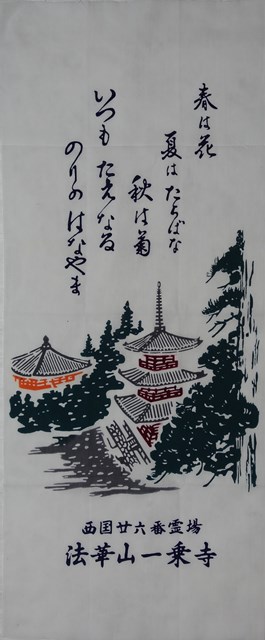 春は花
夏はたちばな
秋は菊
いつもたえなる
のりのはなやま
西国廿六番霊場
法華山一乗寺